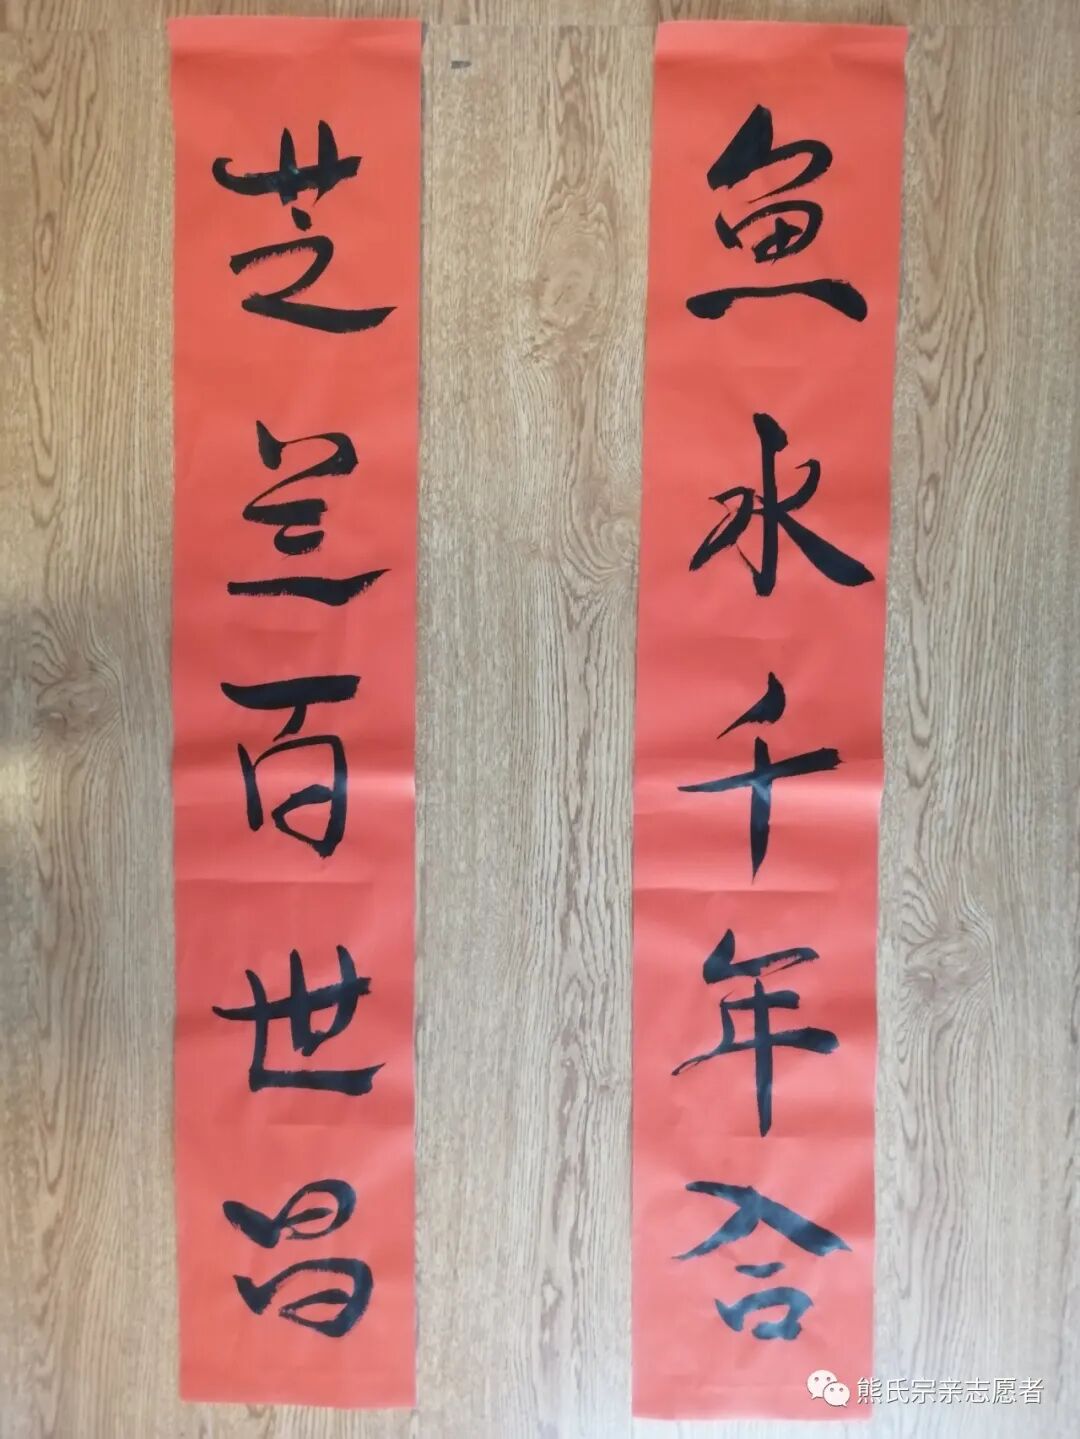 鱼水千年合
芝兰百世昌
熊氏宗亲志愿者